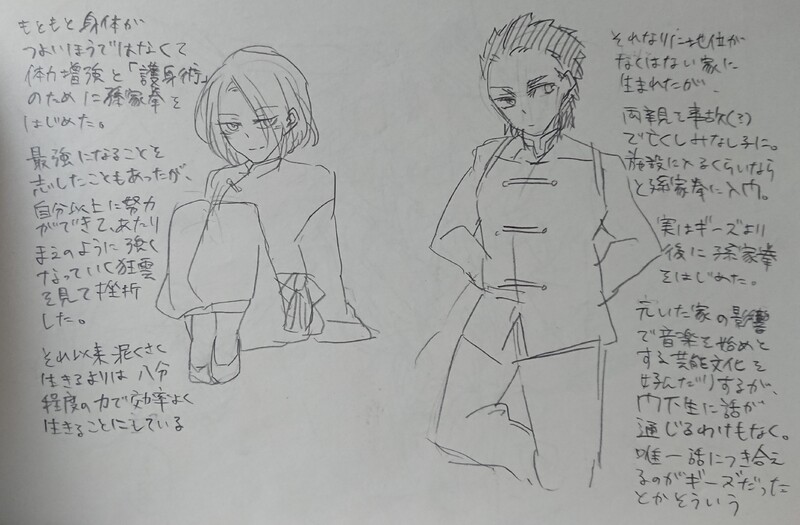 もともと身体が
つよいほうではなくて
体力増強と「護身術」
のために孫家拳を
はじめた。
最強になることを
志したこともあったが、
自分以上に努力
ができて、あたり
まえのように強く
なっていく狂雲
を見て挫折
した。
それ以来泥くさく
生きるよりは八分
程度の力で効率よく
生きることにしている
それなりに地位が
なくはない家に
生まれたが、
両親見て事故(?)
で亡くしみなし子に。
施設に入るくらいなら
と孫家拳に入門。
実はギーズより
後に孫家拳
をはじめた。
元いた家の影響
で音楽を始めと
する芸能文化を
好んだりするが、
門下生に話が
通じるわけもなく。
唯一話につき合え
るのがギーズだった
とかそういう